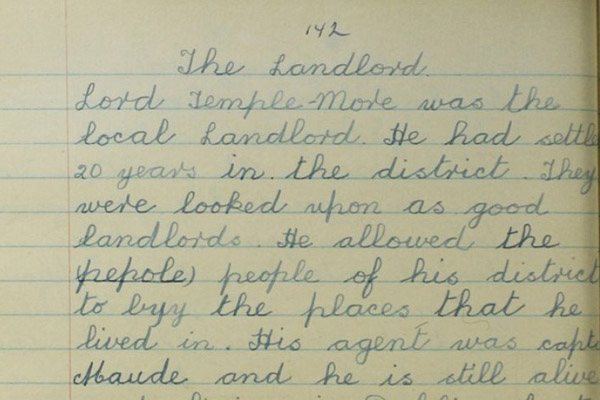 142
The Landlord.
Lord Temple-More was the
local Landlord. He had settle
20 years in. the district. They
were looked upon as good
landlords. He allowed the
pepole) people of his district
to byy the places that he
lived in. His agent was capt
Maude and he is still alive